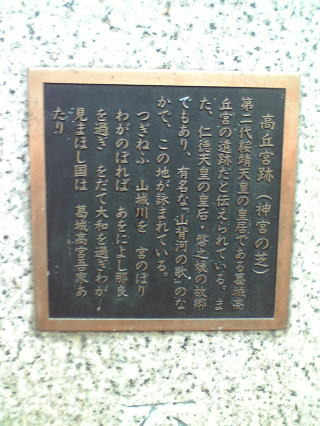 高丘宮跡(神宮の芝)
第二代綏靖天皇の皇居である葛城高
丘宮の遺跡だと伝えられている。ま
た、仁徳天皇の皇后・磐之媛の故郷
でもあり、有名な「山背河の歌」のな
かで、この地が詠まれている。
つぎねふ 山城川を 宮のぼり
わがのぼれば あをによし那良
を過ぎ をだて大和を過ぎわが
見まほし国は 葛城高宮吾家あ
たり